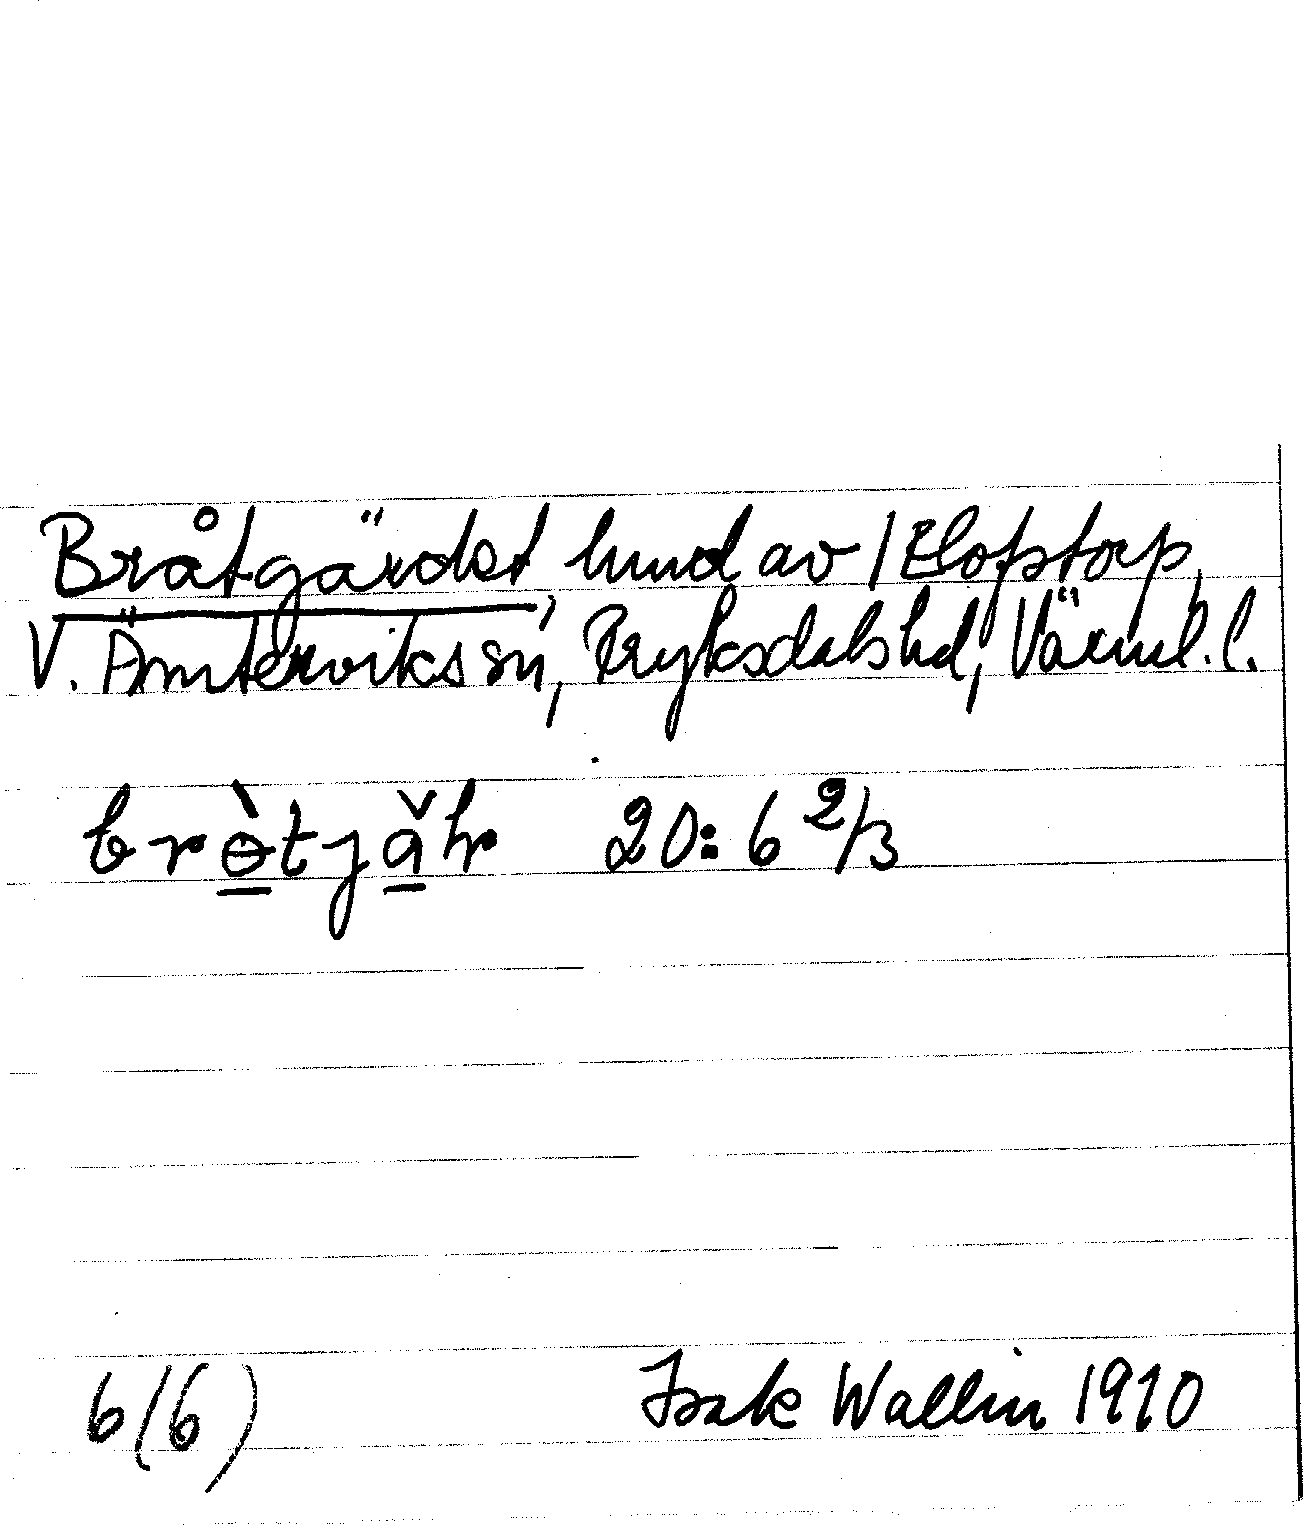 Bråtgärdet, hmd av 1 Elofstorp,
V. Ämterviks sn, Fryksdals hd, Värml. l.
brɵ̠̀tjǎ̠r 20:6 2/3
6(6) Isak Wallin 1910